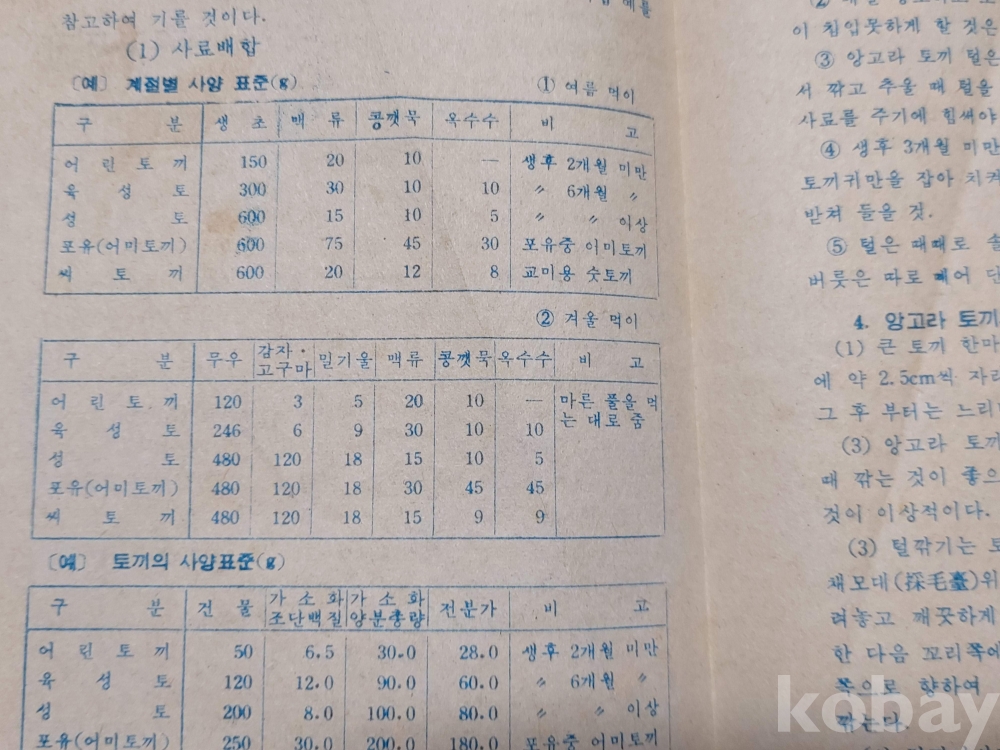 참고하여 기를 것이다.
(1) 사료배합
〔예〕 계절별 사양 표준(g) ① 여름 먹이
구 분 생 초 맥 류 콩깻묵 옥수수 비 고
어 린 토 끼 150 20 10 — 생후 2개월 미만
육 성 토 300 30 10 10 〃 6개월 〃
성 토 600 15 10 5 〃 〃 이상
포유(어미토끼) 600 75 45 30 포유중 어미토끼
씨 토 끼 600 20 12 8 교미용 숫토끼
② 겨울 먹이
구 분 무우 감자· 고구마 밀기울 맥류 콩깻묵 옥수수 비 고
어 린 토 끼 120 3 5 20 10 — 마른 풀을 먹
육 성 토 246 6 9 30 10 10 는 대로 줌
성 토 480 120 18 15 10 5
포유(어미토끼) 480 120 18 30 45 45
씨 토 끼 480 120 18 15 9 9
〔예〕 토끼의 사양표준(g)
구 분 건 물 가 소 화 조단백질 가 소 화 양분총량 전분가 비 고
어 린 토 끼 50 6.5 30.0 28.0 생후 2개월 미만
육 성 토 120 12.0 90.0 60.0 〃 6개월 〃
성 토 200 8.0 100.0 80.0 〃 〃 이상
포유(어미토끼) 250 30.0 200.0 180.0 포유중 어미토끼
이 침입못하게 할 것은
③ 앙고라 토끼 털은
서 깎고 추울 때 털을
사료를 주기에 힘써야
④ 생후 3개월 미만
토끼귀만을 잡아 치켜
받쳐 들을 것.
⑤ 털은 때때로 솔
버릇은 따로 떼어 단
4. 앙고라 토끼
(1) 큰 토끼 한마
에 약 2.5cm씩 자라
그 후 부터는 느리
(3) 앙고라 토끼
때 깎는 것이 좋으
것이 이상적이다.
(3) 털깎기는 토
채모대(採毛臺)위
려놓고 깨끗하게
한 다음 꼬리쪽에
쪽으로 향하여
깎는다.
kobay